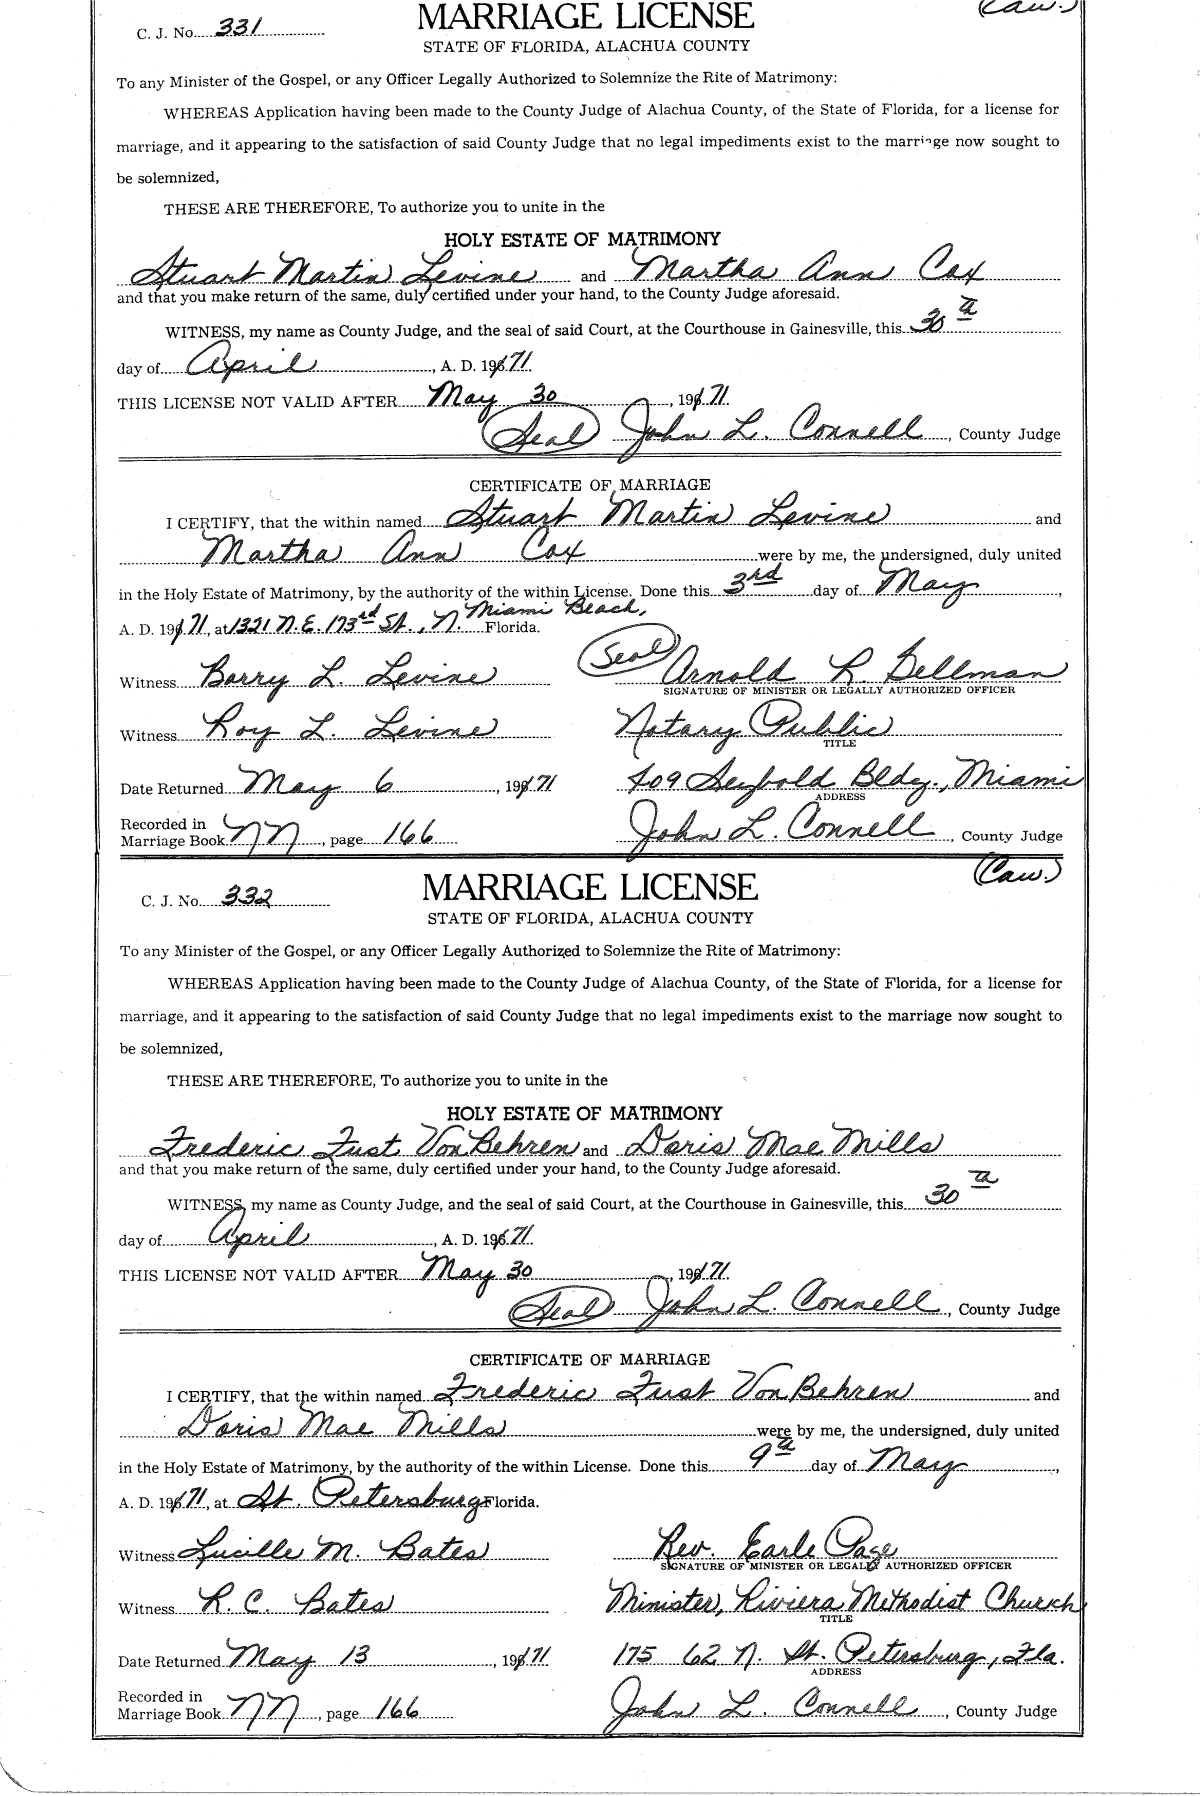 (Caw.)
C. J. No. 331
MARRIAGE LICENSE
STATE OF FLORIDA, ALACHUA COUNTY
To any Minister of the Gospel, or any Officer Legally Authorized to Solemnize the Rite of Matrimony:
WHEREAS Application having been made to the County Judge of Alachua County, of the State of Florida, for a license for
marriage, and it appearing to the satisfaction of said County Judge that no legal impediments exist to the marriage now sought to
be solemnized,
THESE ARE THEREFORE, To authorize you to unite in the
HOLY ESTATE OF MATRIMONY
Stuart Martin Levine and Martha Ann Cox
and that you make return of the same, duly certified under your hand, to the County Judge aforesaid.
WITNESS, my name as County Judge, and the seal of said Court, at the Courthouse in Gainesville, this 30th
day of April, A. D. 1971.
THIS LICENSE NOT VALID AFTER May 30, 1971.
(Seal) John L. Connell, County Judge
CERTIFICATE OF MARRIAGE
I CERTIFY, that the within named Stuart Martin Levine and
Martha Ann Cox were by me, the undersigned, duly united
in the Holy Estate of Matrimony, by the authority of the within License. Done this 3rd day of May,
A. D. 1971, at 1321 N.E. 173rd St., N. Miami Beach, Florida.
Witness Barry L. Levine (Seal) Arnold R. Gellman
SIGNATURE OF MINISTER OR LEGALLY AUTHORIZED OFFICER
Witness Roy L. Levine Notary Public
TITLE
Date Returned May 6, 1971 409 Seybold Bldg., Miami
ADDRESS
Recorded in
Marriage Book NN, page 166 John L. Connell, County Judge
(Caw.)
C. J. No. 332
MARRIAGE LICENSE
STATE OF FLORIDA, ALACHUA COUNTY
To any Minister of the Gospel, or any Officer Legally Authorized to Solemnize the Rite of Matrimony:
WHEREAS Application having been made to the County Judge of Alachua County, of the State of Florida, for a license for
marriage, and it appearing to the satisfaction of said County Judge that no legal impediments exist to the marriage now sought to
be solemnized,
THESE ARE THEREFORE, To authorize you to unite in the
HOLY ESTATE OF MATRIMONY
Frederic Fust VonBehren and Doris Mae Mills
and that you make return of the same, duly certified under your hand, to the County Judge aforesaid.
WITNESS, my name as County Judge, and the seal of said Court, at the Courthouse in Gainesville, this 30th
day of April, A. D. 1971.
THIS LICENSE NOT VALID AFTER May 30, 1971.
(Seal) John L. Connell, County Judge
CERTIFICATE OF MARRIAGE
I CERTIFY, that the within named Frederic Fust VonBehren and
Doris Mae Mills were by me, the undersigned, duly united
in the Holy Estate of Matrimony, by the authority of the within License. Done this 9th day of May,
A. D. 1971, at St. Petersburg Florida.
Witness Lucille M. Bates Rev. Earle Page
SIGNATURE OF MINISTER OR LEGALLY AUTHORIZED OFFICER
Witness R. C. Bates Minister, Riviera Methodist Church
TITLE
Date Returned May 13, 1971 175 62 N. St. Petersburg, Fla.
ADDRESS
Recorded in
Marriage Book NN, page 166 John L. Connell, County Judge